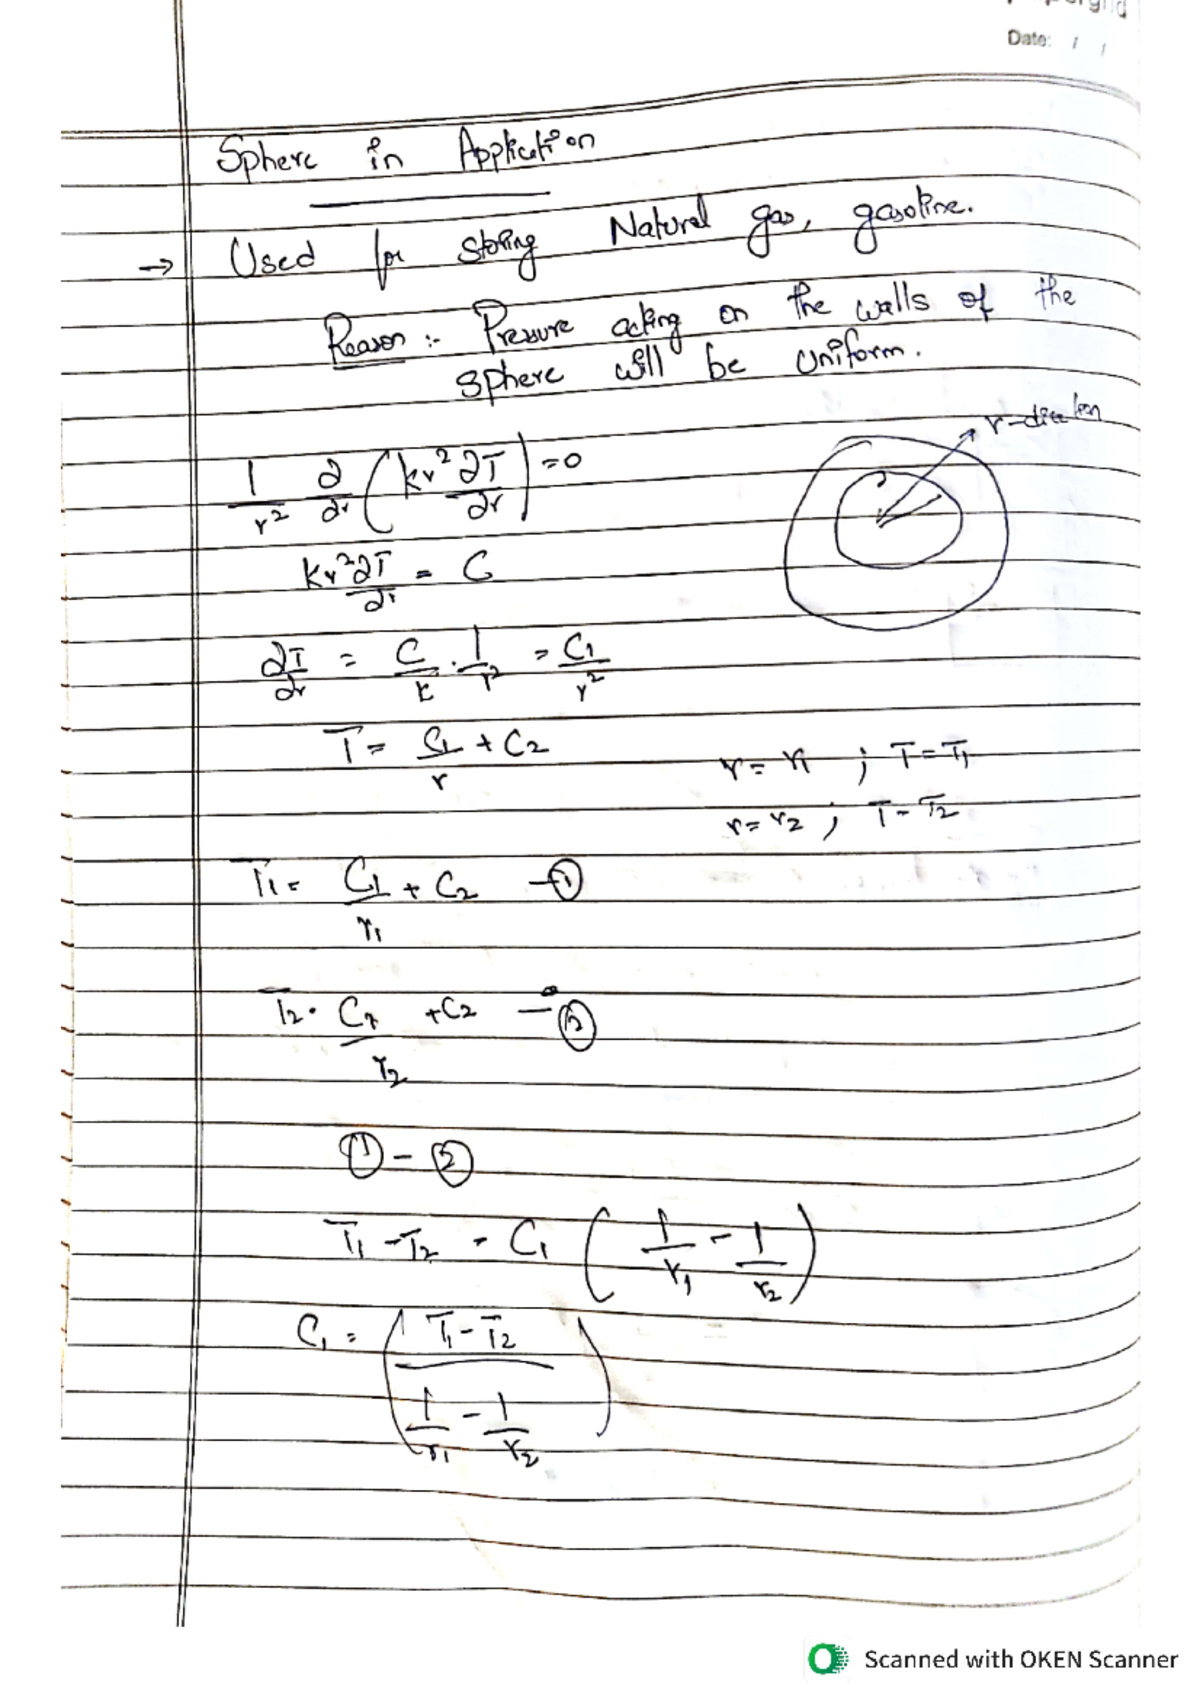 Date: / /
Sphere in Application
→ Used for storing Natural gas, gasoline.
Reason :- Pressure acting on the walls of the
sphere will be uniform.
r-direction
1/r² ∂/∂r (kr² ∂T/∂r) = 0
kr² ∂T/∂r = C
∂T/∂r = C/k · 1/r² = C₁/r²
T = C₁/r + C₂
r = r₁ ; T = T₁
r = r₂ ; T = T₂
T₁ = C₁/r₁ + C₂ —①
T₂ = C₁/r₂ + C₂ —②
① - ②
T₁ - T₂ = C₁ (1/r₁ - 1/r₂)
C₁ = ((T₁ - T₂)/(1/r₁ - 1/r₂))
Scanned with OKEN Scanner